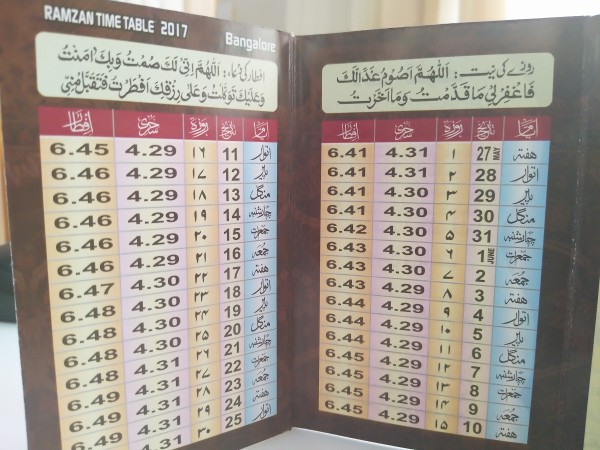 RAMZAN TIME TABLE 2017
Bangalore
روزے کی نیت: اَللّٰهُمَّ اَصُوْمُ غَدًا لَّكَ
فَاغْفِرْلِیْ مَا قَدَّمْتُ وَمَا اَخَّرْتُ
ایام تاریخ روزہ سحری افطار
ہفتہ 27 MAY ۱ 4.31 6.41
اتوار 28 ۲ 4.31 6.41
پیر 29 ۳ 4.30 6.41
منگل 30 ۴ 4.30 6.41
چہارشنبہ 31 ۵ 4.30 6.42
جمعرات 1 JUNE ۶ 4.30 6.43
جمعہ 2 ۷ 4.30 6.43
ہفتہ 3 ۸ 4.29 6.43
اتوار 4 ۹ 4.29 6.44
پیر 5 ۱۰ 4.29 6.44
منگل 6 ۱۱ 4.29 6.44
چہارشنبہ 7 ۱۲ 4.29 6.45
جمعرات 8 ۱۳ 4.29 6.45
جمعہ 9 ۱۴ 4.29 6.45
ہفتہ 10 ۱۵ 4.29 6.45
افطار کی دعاء: اَللّٰهُمَّ اِنِّیْ لَكَ صُمْتُ وَبِكَ اٰمَنْتُ
وَعَلَیْكَ تَوَكَّلْتُ وَعَلٰی رِزْقِكَ اَفْطَرْتُ فَتَقَبَّلْ مِنِّیْ
ایام تاریخ روزہ سحری افطار
اتوار 11 ۱۶ 4.29 6.45
پیر 12 ۱۷ 4.29 6.46
منگل 13 ۱۸ 4.29 6.46
چہارشنبہ 14 ۱۹ 4.29 6.46
جمعرات 15 ۲۰ 4.29 6.46
جمعہ 16 ۲۱ 4.29 6.46
ہفتہ 17 ۲۲ 4.29 6.47
اتوار 18 ۲۳ 4.30 6.47
پیر 19 ۲۴ 4.30 6.48
منگل 20 ۲۵ 4.30 6.48
چہارشنبہ 21 ۲۶ 4.31 6.48
جمعرات 22 ۲۷ 4.31 6.49
جمعہ 23 ۲۸ 4.31 6.49
ہفتہ 24 ۲۹ 4.31 6.49
اتوار 25 ۳۰